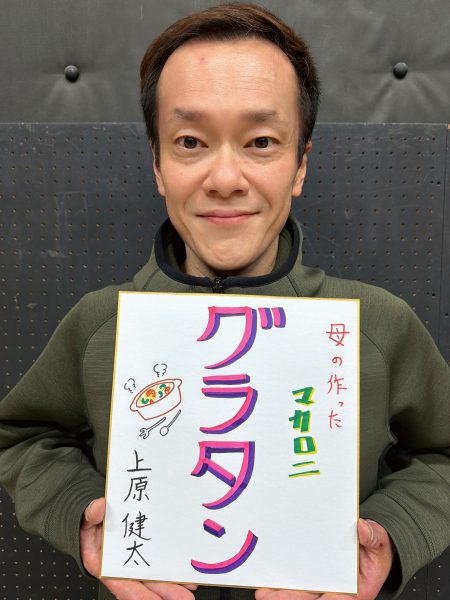 母の作った
マカロニ
グラタン
上原健太